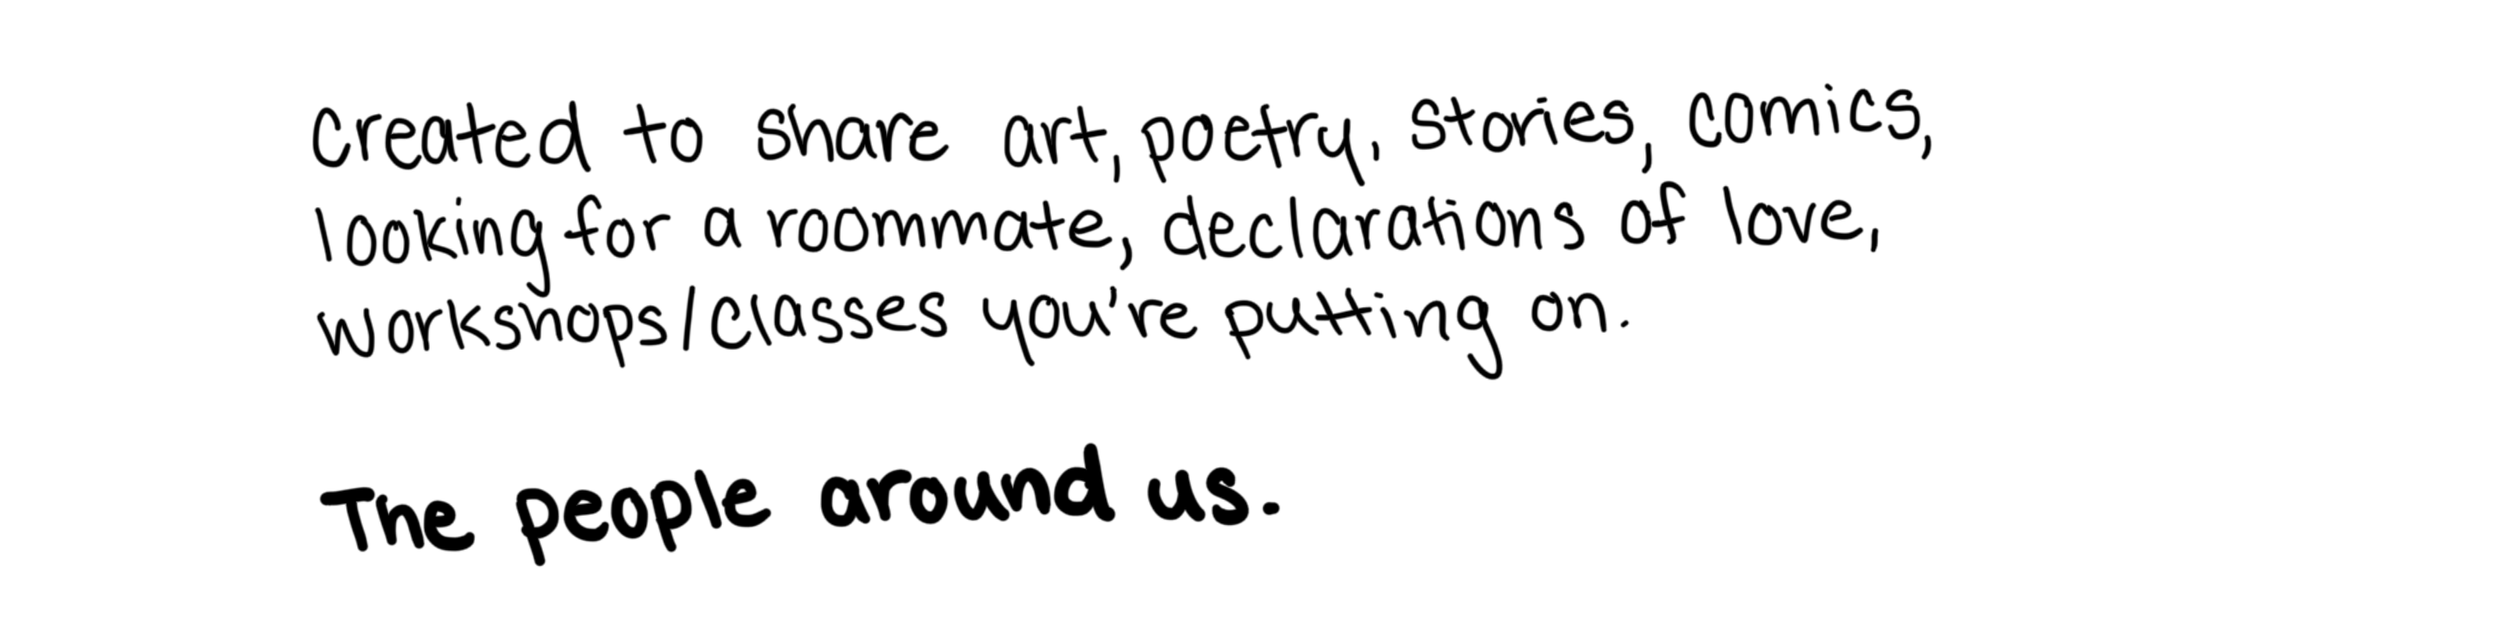 Created to share art, poetry, stories, comics,
looking for a roommate, declarations of love,
workshops/classes you're putting on.
The people around us.